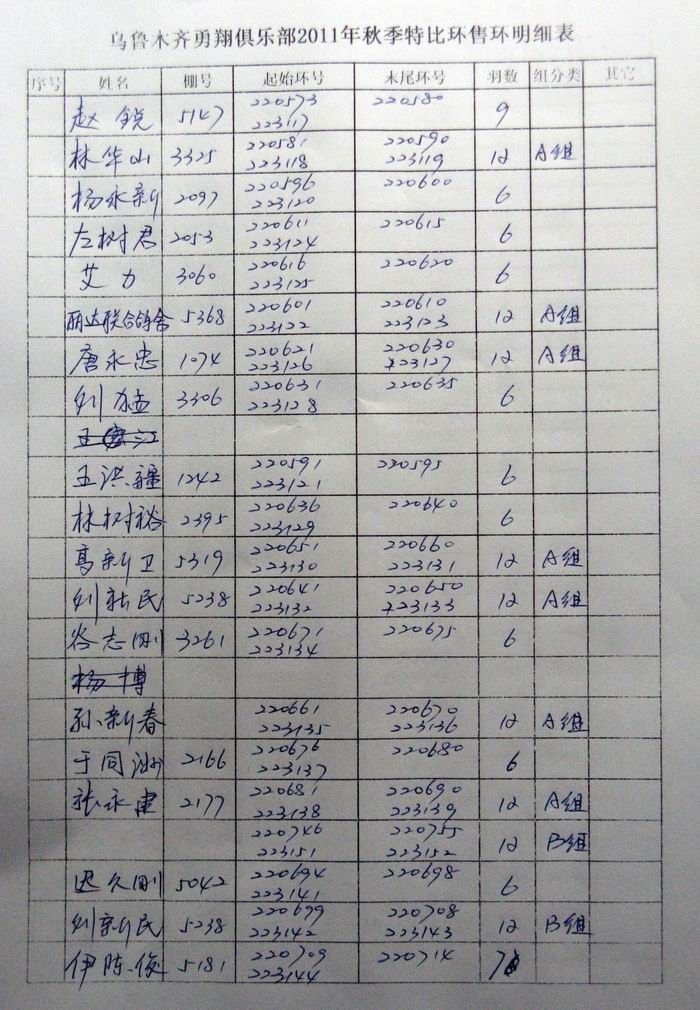 乌鲁木齐勇翔俱乐部2011年秋季特比环售环明细表
序号 姓名 棚号 起始环号 末尾环号 羽数 组分类 其它
赵锐 5147 220573 220580 9
223117
林华山 3325 220581 220590 12 A组
223118 223119
杨永新 2097 220596 220600 6
223120
左树君 2053 220611 220615 6
223124
艾力 3060 220616 220620 6
223125
丽达联合鸽舍 5368 220601 220610 12 A组
223122 223123
唐永忠 1074 220621 220630 12 A组
223126 223127
刘猛 3306 220631 220635 6
223128
王洪疆 1242 220591 220595 6
223121
林树裕 2395 220636 220640 6
223129
高新卫 5319 220651 220660 12 A组
223130 223131
刘新民 5238 220641 220650 12 A组
223132 223133
谷志刚 3261 220671 220675 6
223134
杨博
孙新春 220661 220670 12 A组
223135 223136
于同洲 2166 220676 220680 6
223137
张永建 2177 220681 220690 12 A组
223138 223139
220746 220755 12 B组
223151 223152
迟久刚 5042 220694 220698 6
223141
刘新民 5238 220699 220708 12 B组
223142 223143
伊陈俊 5181 220709 220714 7
223144